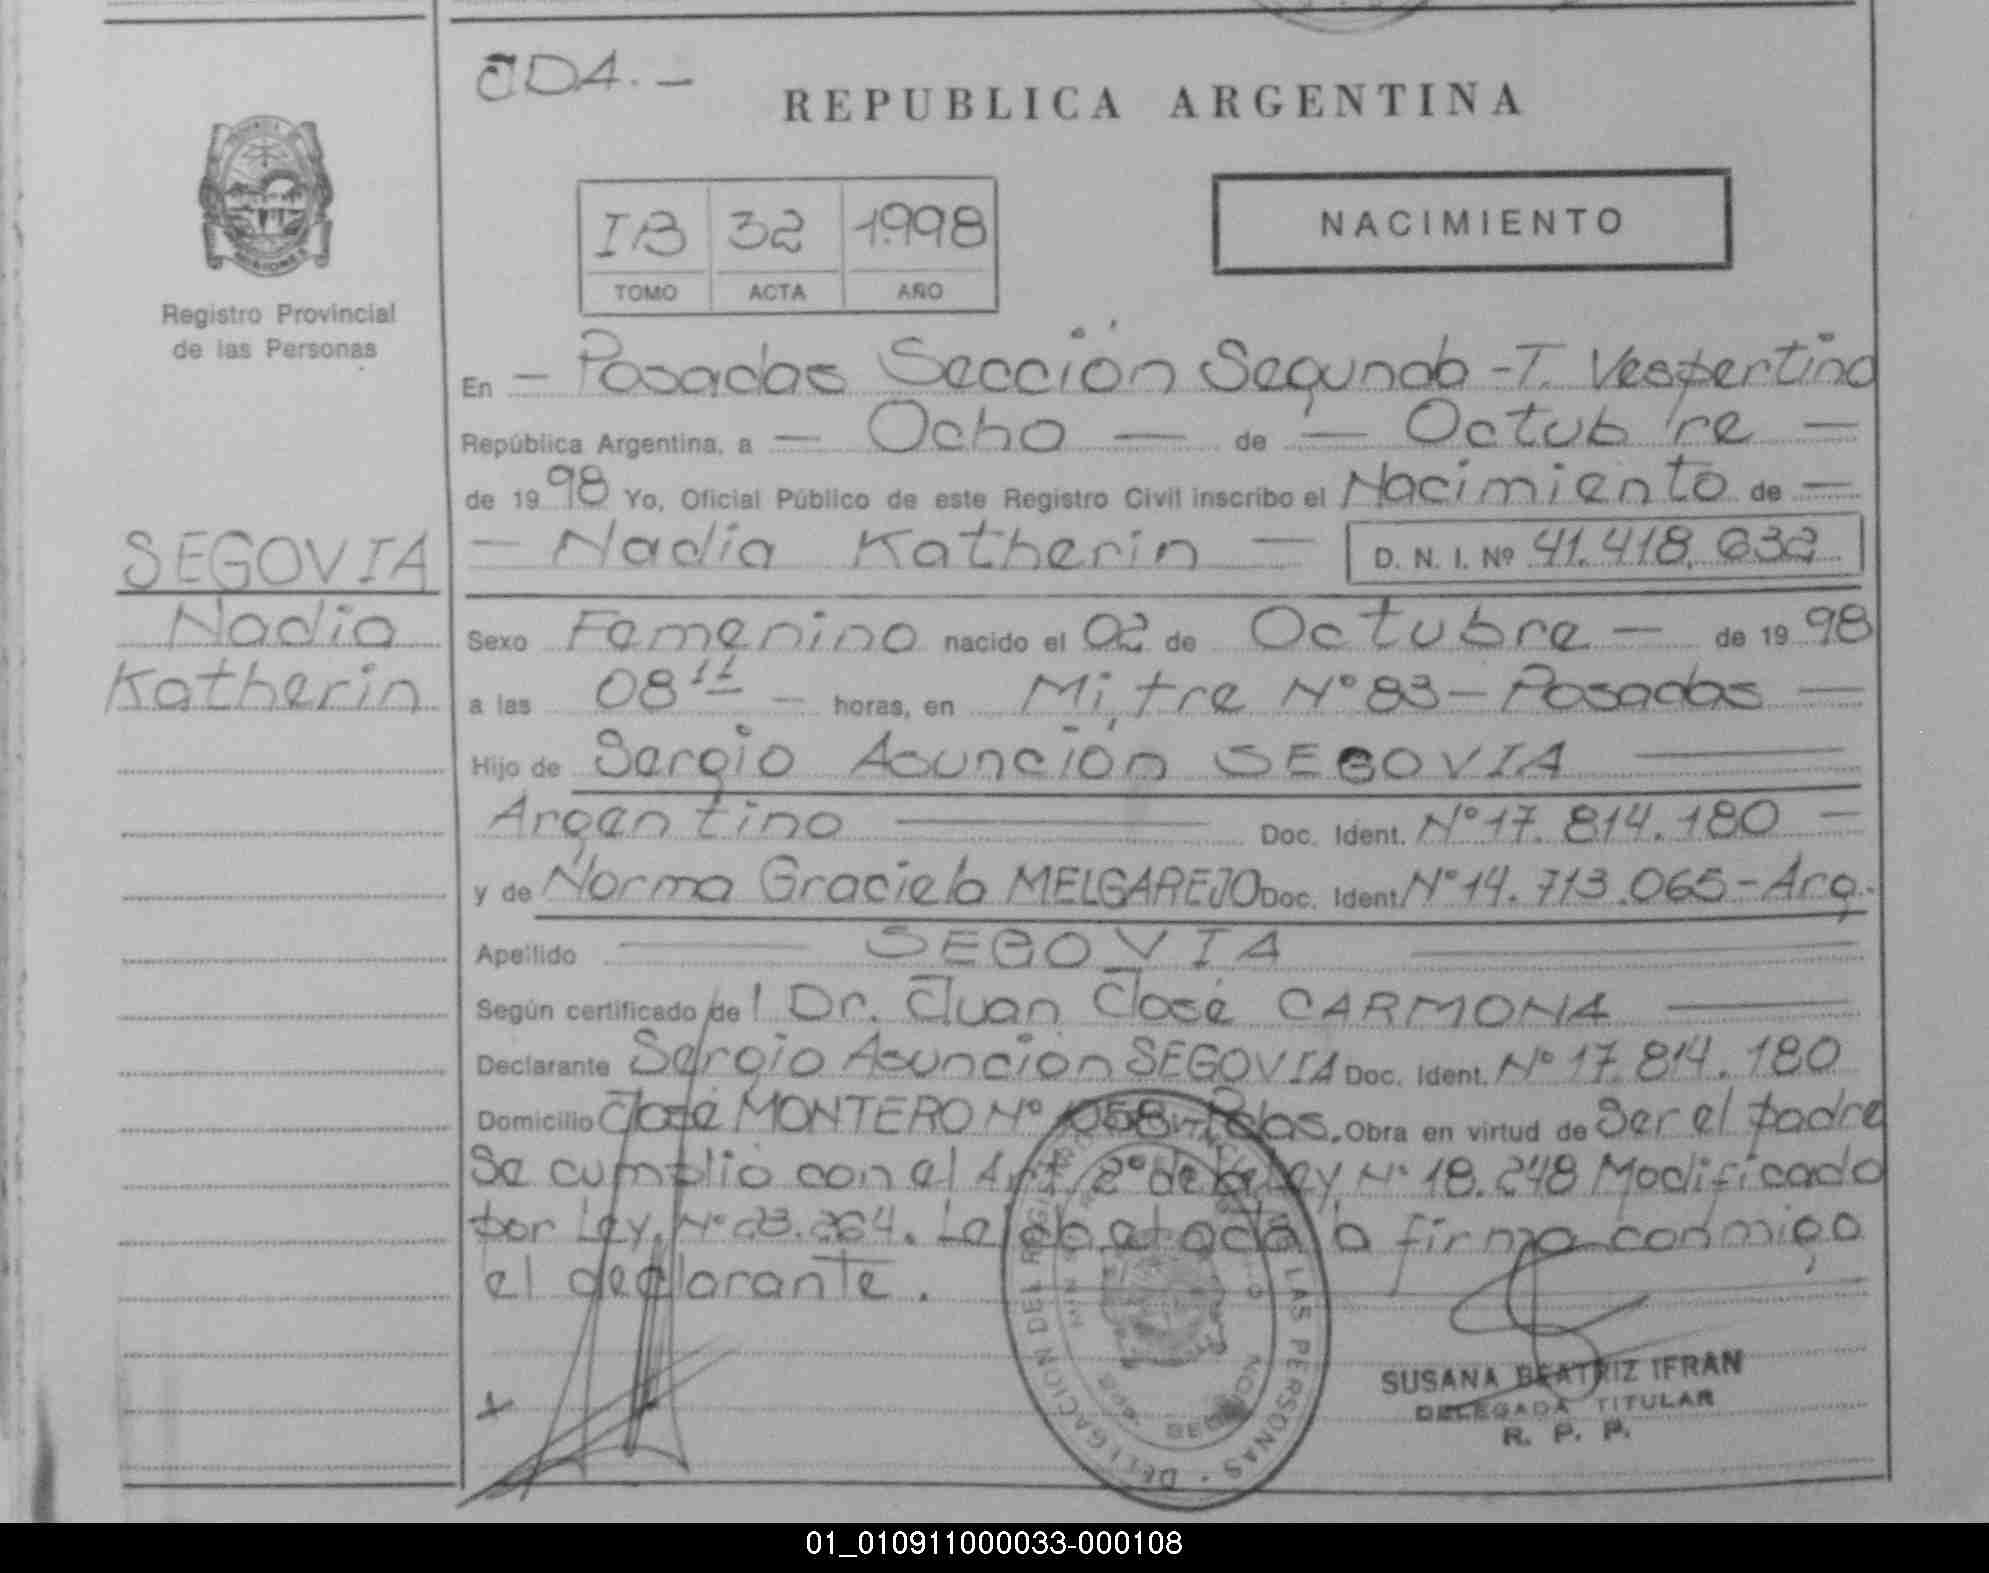 JDA.-
REPUBLICA ARGENTINA
IB 32 1998
TOMO ACTA AÑO
NACIMIENTO
Registro Provincial
de las Personas
En - Posadas Sección Segunda - T. Vespertino
República Argentina, a - Ocho - de - Octubre -
de 1998 Yo, Oficial Público de este Registro Civil inscribo el Nacimiento de -
- Nadia Katherin - D. N. I. Nº 41.418.632
SEGOVIA
Nadia
Katherin
Sexo Femenino nacido el 02 de Octubre - de 1998
a las 08 11 - horas, en Mitre Nº 83 - Posadas -
Hijo de Sergio Asunción SEGOVIA
Argentino Doc. Ident. Nº 17.814.180 -
y de Norma Graciela MELGAREJO Doc. Ident. Nº 14.713.065 - Arg.
Apellido SEGOVIA
Según certificado de Dr. Juan José CARMONA
Declarante Sergio Asunción SEGOVIA Doc. Ident. Nº 17.814.180
Domicilio José MONTERO Nº 1058 - Pdas. Obra en virtud de Ser el padre
Se cumplio con el Art. 2º de la Ley Nº 18.248 Modificado
por Ley, Nº 23.264. Leída el acta la firma conmigo
el declarante.
DELEGACION DEL REGISTRO LAS PERSONAS
SUSANA BEATRIZ IFRAN
DELEGADA TITULAR
R. P. P.
01_010911000033-000108